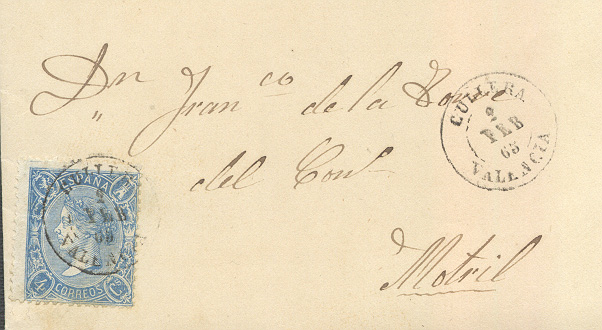 Dn Franco de la Torre
del Conl
Motril
CULLERA
2
FEB
65
VALENCIA
ESPAÑA
4 CORREOS Cs
CULLERA
2
FEB
65
VALENCIA